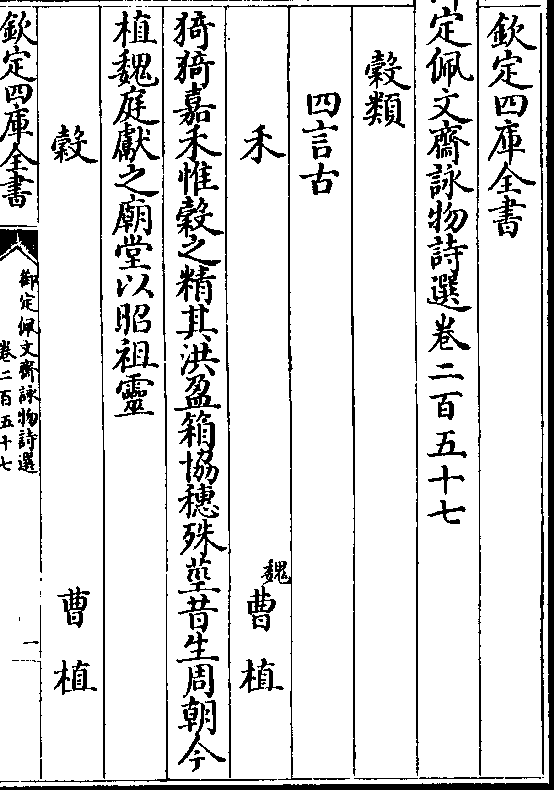 欽定四庫全書
定佩文齋詠物詩選卷二百五十七
穀類
四言古
禾 魏 曹植
猗猗嘉禾惟穀之精其洪盈箱協穗殊莖昔生周朝今
植魏庭獻之廟堂以昭祖靈
穀 曹植
欽定四庫全書
御定佩文齋詠物詩選
卷二百五十七
一